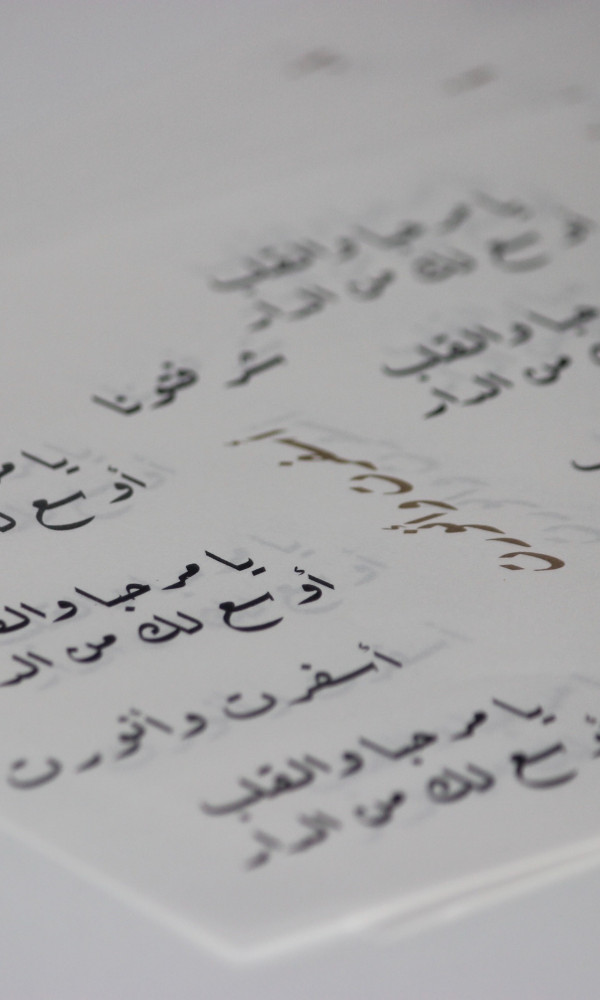 يا مرحبا والقلب
أوسع لك من الدار
حبا والقلب
من الدار
شرفتونا
يا مر
أوسع لك
يا مرحبا والقلب
أوسع لك من الدار
أسفرت وأنورت
يا مرحبا والقلب
أوسع لك من الدار